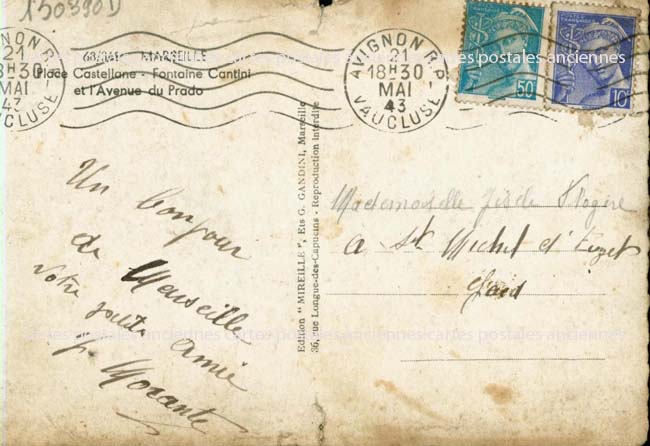 150390D
AVIGNON R.P.
21
18H30
MAI
43
VAUCLUSE
MARSEILLE
Place Castellane - Fontaine Cantini
et l'Avenue du Prado
AVIGNON R.P.
21
18H30
MAI
43
VAUCLUSE
50c
10c
cartes postales anciennes
Un bonjour
de Marseille
votre
amie
Morante
Edition "MIREILLE", Ets G. GANDINI, Marseille
36, rue Longue-des-Capucins - Reproduction interdite
Mademoiselle
a St Michel d'Euzet
Gard
cartes postales anciennes cartes postales anciennes